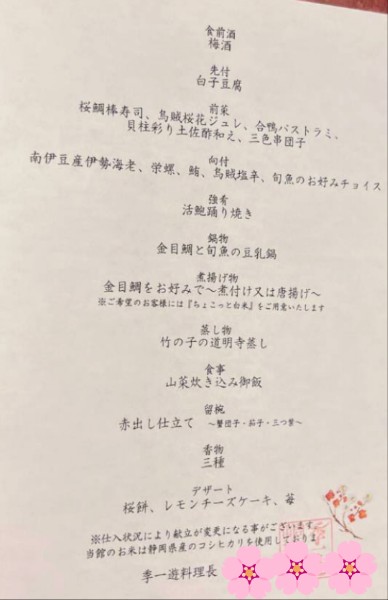 食前酒
梅酒
先付
白子豆腐
前菜
桜鯛棒寿司、烏賊桜花ジュレ、合鴨パストラミ、
貝柱彩り土佐酢和え、三色串団子
向付
南伊豆産伊勢海老、栄螺、鮪、烏賊塩辛、旬魚のお好みチョイス
強肴
活鮑踊り焼き
鍋物
金目鯛と旬魚の豆乳鍋
煮揚げ物
金目鯛をお好みで〜煮付け又は唐揚げ〜
※ご希望のお客様には『ちょこっと白米』をご用意いたします
蒸し物
竹の子の道明寺蒸し
食事
山菜炊き込み御飯
留椀
赤出し仕立て 〜蟹団子・茄子・三つ葉〜
香物
三種
デザート
桜餅、レモンチーズケーキ、苺
※仕入状況により献立が変更になる事がございます。
当館のお米は静岡県産のコシヒカリを使用しておりま
季一遊料理長